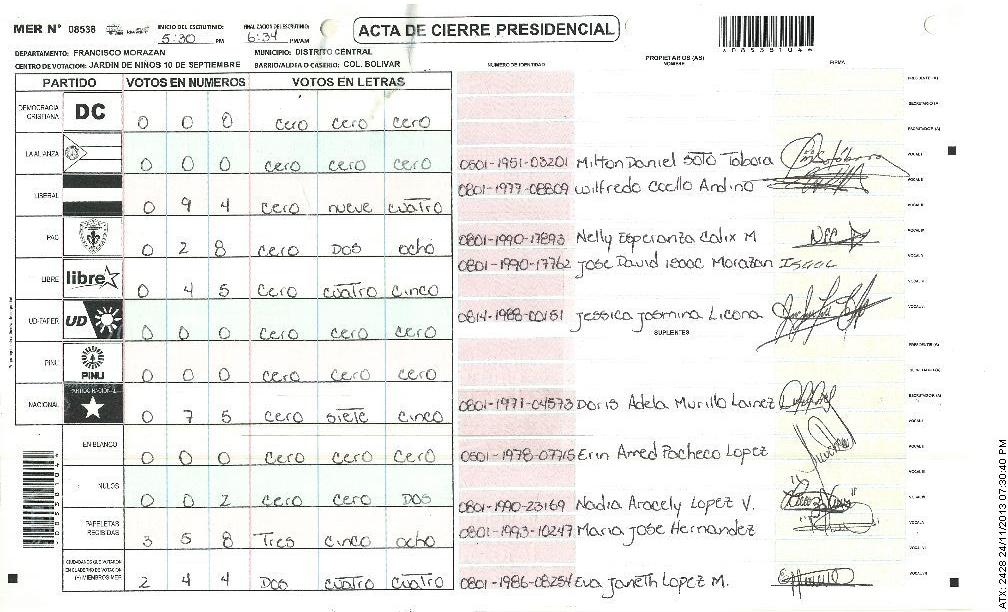 MER N° 08538
INICIO DEL ESCRUTINIO: 5:30 PM
FINALIZACION DEL ESCRUTINIO: 6:34 PM/AM
ACTA DE CIERRE PRESIDENCIAL
DEPARTAMENTO: FRANCISCO MORAZAN MUNICIPIO: DISTRITO CENTRAL
CENTRO DE VOTACION: JARDIN DE NIÑOS 10 DE SEPTIEMBRE BARRIO/ALDEA O CASERIO: COL. BOLIVAR
PARTIDO VOTOS EN NUMEROS VOTOS EN LETRAS
DEMOCRACIA CRISTIANA DC 0 0 0 cero cero cero
LA ALIANZA 0 0 0 cero cero cero
LIBERAL 0 9 4 cero nueve cuatro
PAC 0 2 8 cero DOS ocho
LIBRE libre 0 4 5 cero cuatro cinco
UD-FAPER UD 0 0 0 cero cero cero
PINU PINU 0 0 0 cero cero cero
NACIONAL 0 7 5 cero siete cinco
EN BLANCO 0 0 0 cero cero cero
NULOS 0 0 2 cero cero DOS
PAPELETAS RECIBIDAS 3 5 8 Tres cinco ocho
CIUDADANOS QUE VOTARON EN CUADERNO DE VOTACION (+) MIEMBROS MER 2 4 4 DOS cuatro cuatro
NUMERO DE IDENTIDAD PROPIETARIOS (AS) NOMBRE FIRMA
0801-1951-03201 Milton Daniel Soto Tabora
0801-1977-08809 Wilfredo Coello Andino
0801-1990-17893 Nelly Esperanza Calix M
0801-1990-17762 Jose David isaac Morazan Isaac
0814-1988-00151 Jessica Jasmina Licona
SUPLENTES
0801-1971-04573 Doris Adela Murillo Lainez
0801-1978-07715 Erin Amed Pacheco Lopez
0801-1990-23169 Nadia Aracely Lopez V.
0801-1993-10247 Maria Jose Hernandez
0801-1986-08254 Eva Janeth Lopez M.
ATX: 2428 24/11/2013 07:30:40 PM